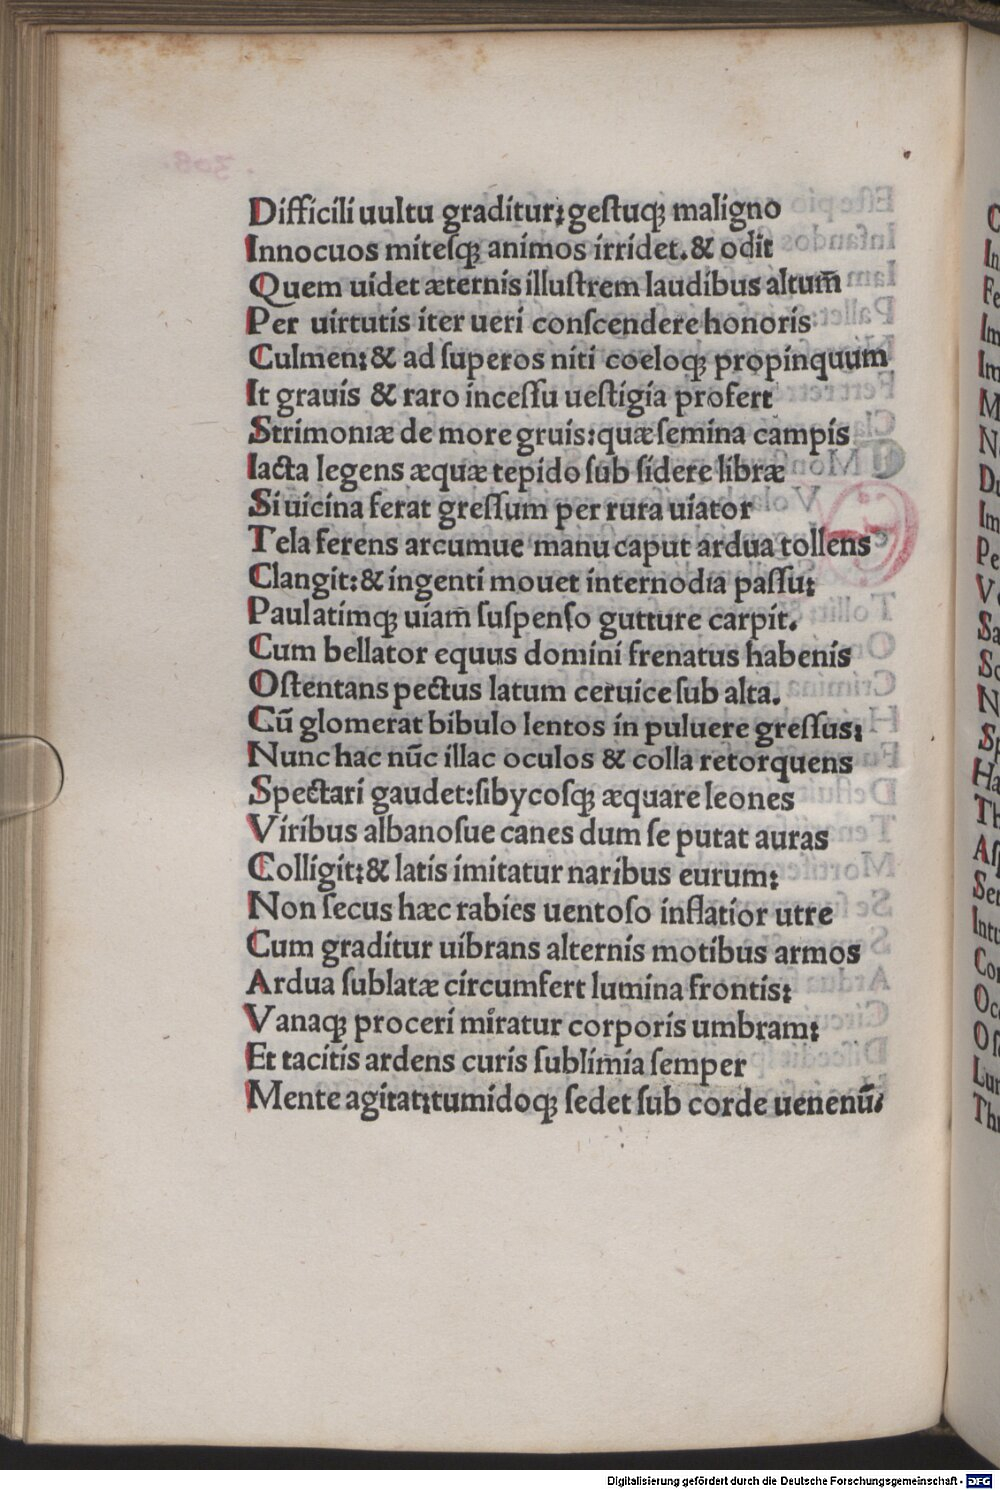 Difficili uultu graditur; geſtuqꝫ maligno
Innocuos miteſqꝫ animos irridet. & odit
Quem uidet æternis illuſtrem laudibus altum̄
Per uirtutis iter ueri conſcendere honoris
Culmen; & ad ſuperos niti coeloqꝫ propinquum
It grauis & raro inceſſu ueſtigia profert
Strimoniæ de more gruis: quæ ſemina campis
Iacta legens æquæ tepido ſub ſidere libræ
Si uicina ferat greſſum per rura uiator
Tela ferens arcumue manu caput ardua tollens
Clangit: & ingenti mouet internodia paſſu;
Paulatimqꝫ uiam̄ ſuſpenſo gutture carpit.
Cum bellator equus domini frenatus habenis
Oſtentans pectus latum ceruice ſub alta.
Cū glomerat bibulo lentos in puluere greſſus;
Nunc hac nūc illac oculos & colla retorquens
Spectari gaudet: ſibycoſqꝫ æquare leones
Viribus albanoſue canes dum ſe putat auras
Colligit: & latis imitatur naribus eurum;
Non ſecus hæc rabies uentoſo inflatior utre
Cum graditur uibrans alternis motibus armos
Ardua ſublatæ circumfert lumina frontis;
Vanaqꝫ proceri miratur corporis umbram;
Et tacitis ardens curis ſublimia ſemper
Mente agitat; tumidoqꝫ ſedet ſub corde uenenū.
Digitalisierung gefördert durch die Deutsche Forschungsgemeinschaft - DFG